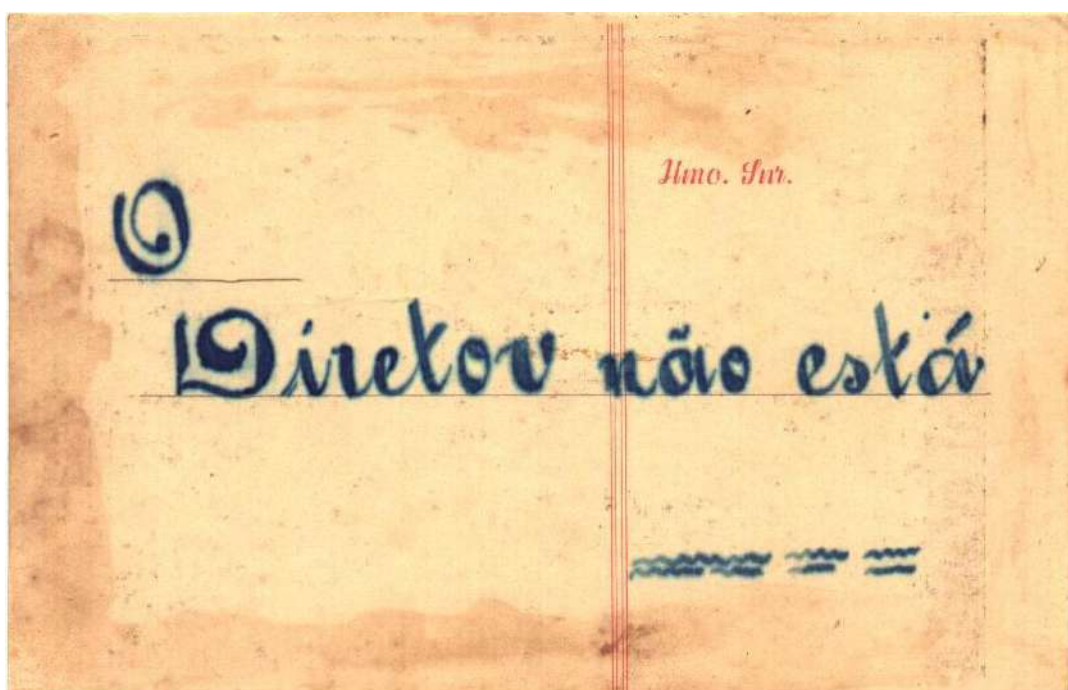 Illmo. Snr.
O
Diretor não está